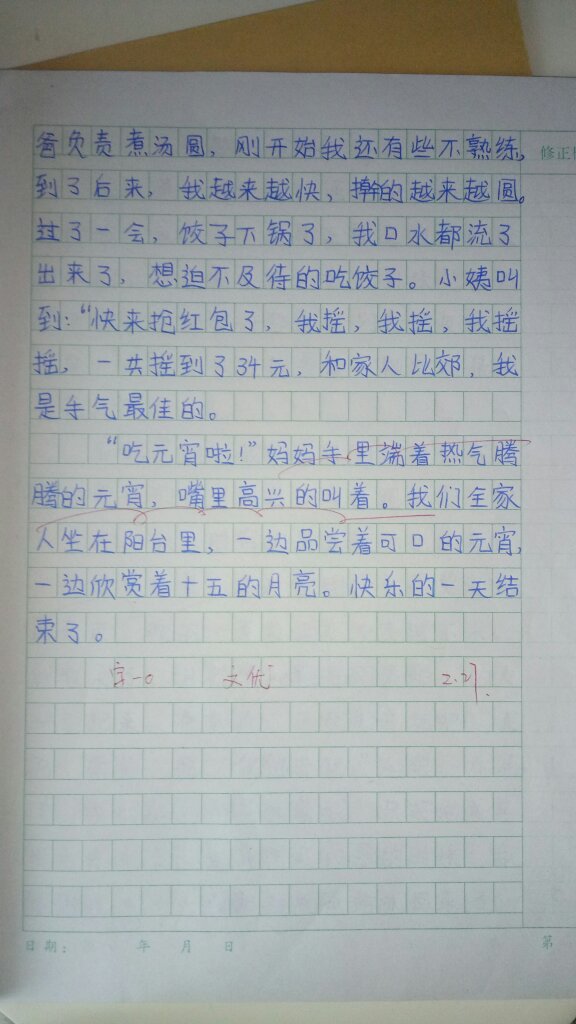 爸负责煮汤圆，刚开始我还有些不熟练，
修正
到了后来，我越来越快，擀的越来越圆。
过了一会，饺子下锅了，我口水都流了
出来了，想迫不及待的吃饺子。小姨叫
到：“快来抢红包了，我摇，我摇，我摇
摇，一共摇到了34元，和家人比郊，我
是手气最佳的。
“吃元宵啦！”妈妈手里端着热气腾
腾的元宵，嘴里高兴的叫着。我们全家
人坐在阳台里，一边品尝着可口的元宵，
一边欣赏着十五的月亮。快乐的一天结
束了。
字一○ 文优 2.27.
日期： 年 月 日 第